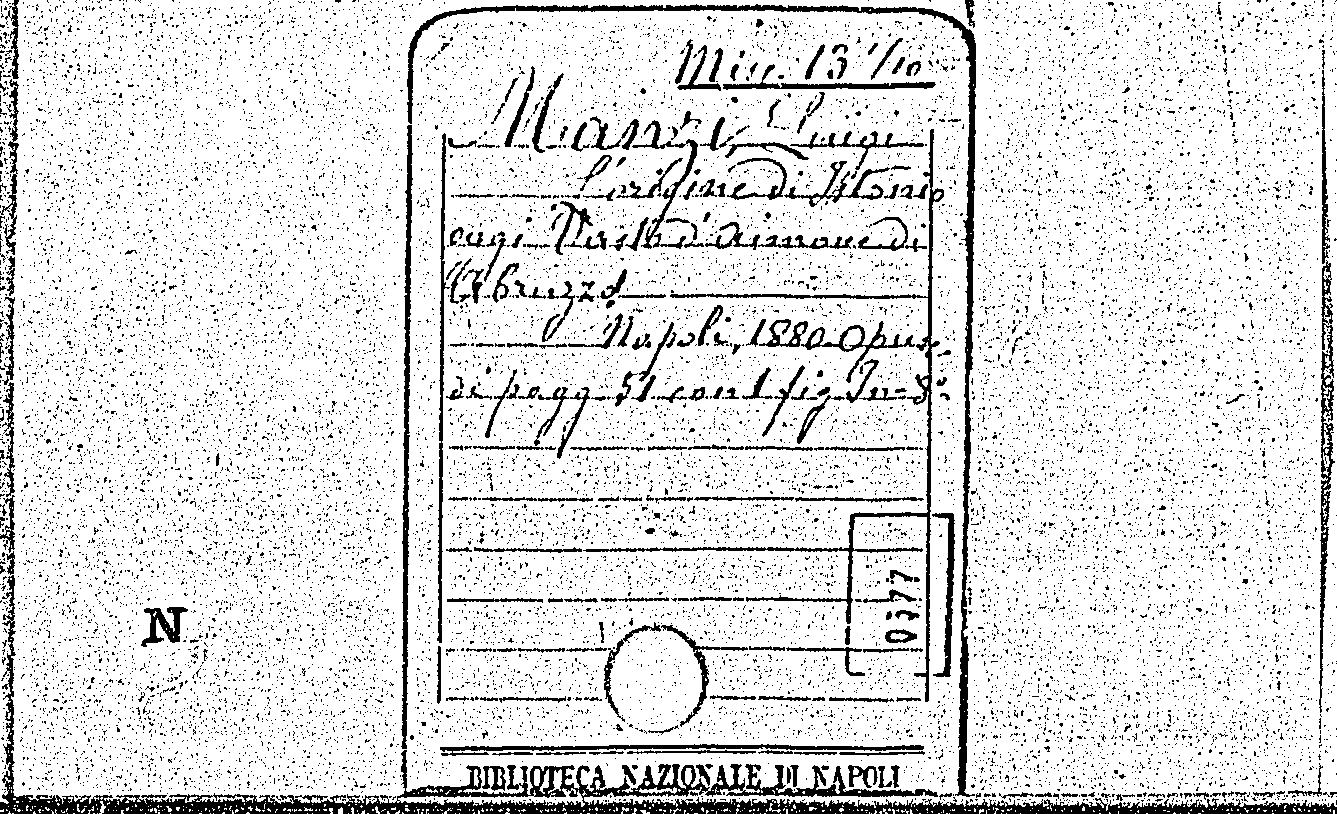 Misc. 13 1/10
Manzi, Luigi
L'origine di Istonio
oggi Vasto d'Aimone di
Abruzzo
Napoli, 1880 Opusc.
di pagg. 51 con 1 fig. In-8º.
0377
N
BIBLIOTECA NAZIONALE DI NAPOLI